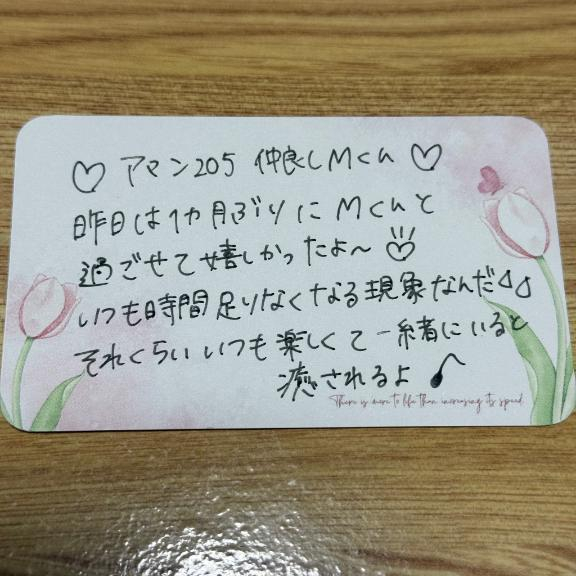 ♡ アマン205 仲良しMくん ♡
昨日は1ヵ月ぶりにMくんと
過ごせて嬉しかったよ〜♡
いつも時間足りなくなる現象なんだ
それくらいいつも楽しくて一緒にいると
癒されるよ♪
There is more to life than increasing its speed.